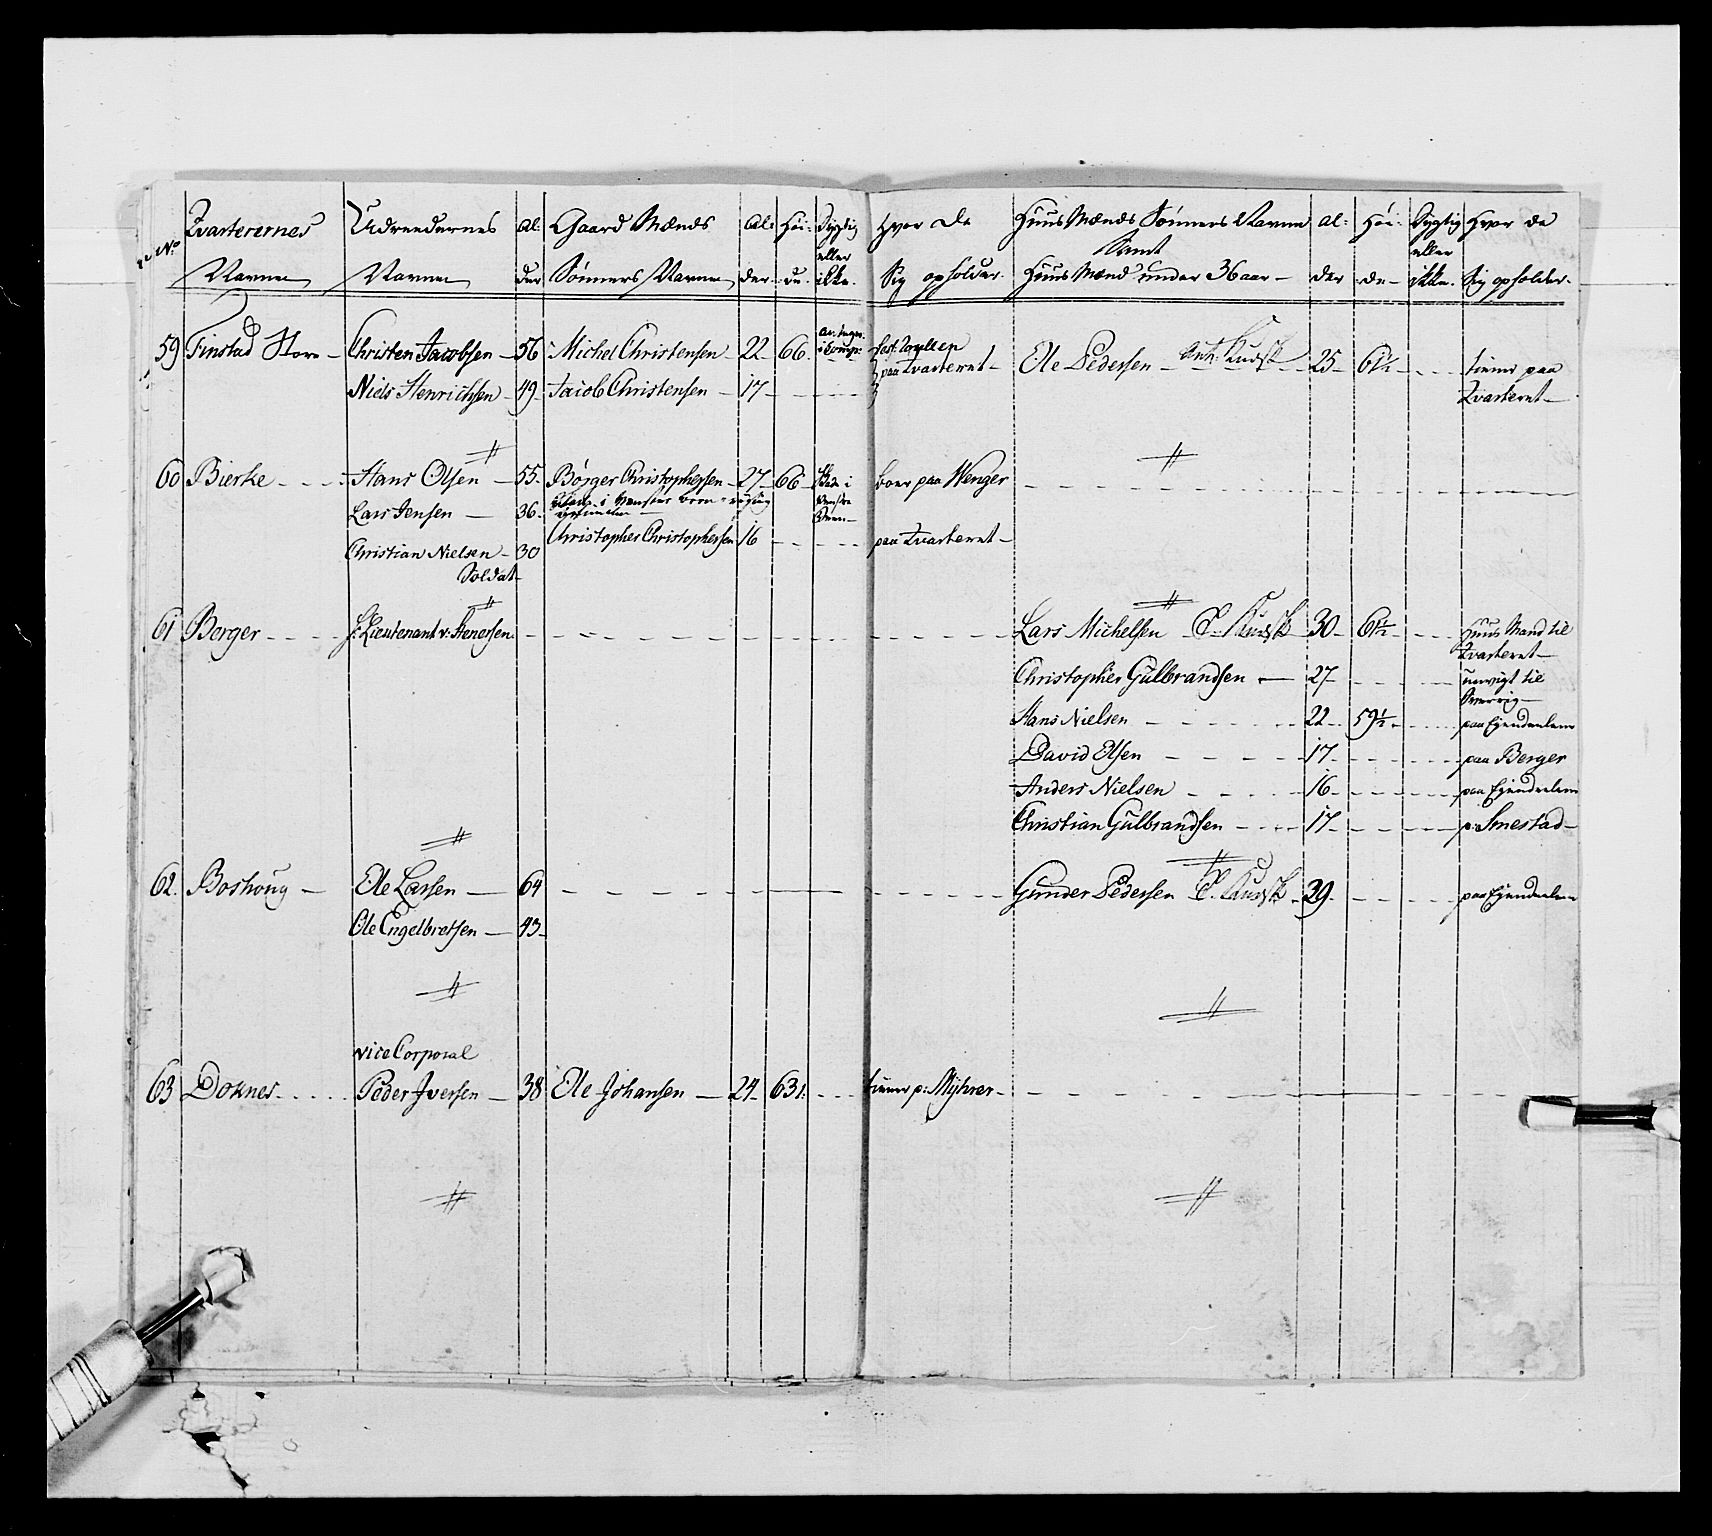 No
Qvarterernes Navne
Udreedernes Navne
Al: der
Gaard Mænds Sönners Navne
Al: der
Höi: de
Dygtig eller ikke
Hvor de Sig opholder
Huus Mænds Sönners Navne Samt Huus Mænd under 36 aar
Al: der
Höi: de
Dygtig eller ikke
Hvor de Sig opholder
59 Finstad Store Christen Jacobsen 56 Michel Christensen 22 66 paa Qvarteret Ole Pedersen 25 61½ tiener paa Qvarteret
Niels Henrichsen 49 Jacob Christensen 17
60 Bierke Hans Olsen 55 Börger Christophersen 27 66 boer paa Wenger
Lars Jensen 36
Christian Nielsen 30 Christopher Christophersen 16 paa Qvarteret
Soldat
61 Berger Lieutenant v: Stenersen Lars Michelsen 30 61½ Huus Mand til Qvarteret
Christopher Gulbrandsen 27 til Sverrig
Hans Nielsen 22 59½ paa Ejendeelene
David Olsen 17 paa Berger
Anders Nielsen 16 paa Ejendeelene
Christian Gulbrandsen 17 p: Smestad
62 Boshoug Ole Larsen 64 Gunder Pedersen 29 paa Ejendeelene
Ole Engelbretsen 43
vice Corporal
63 Doknes Peder Iversen 38 Ole Johansen 24 63 tiener p: Myhrer